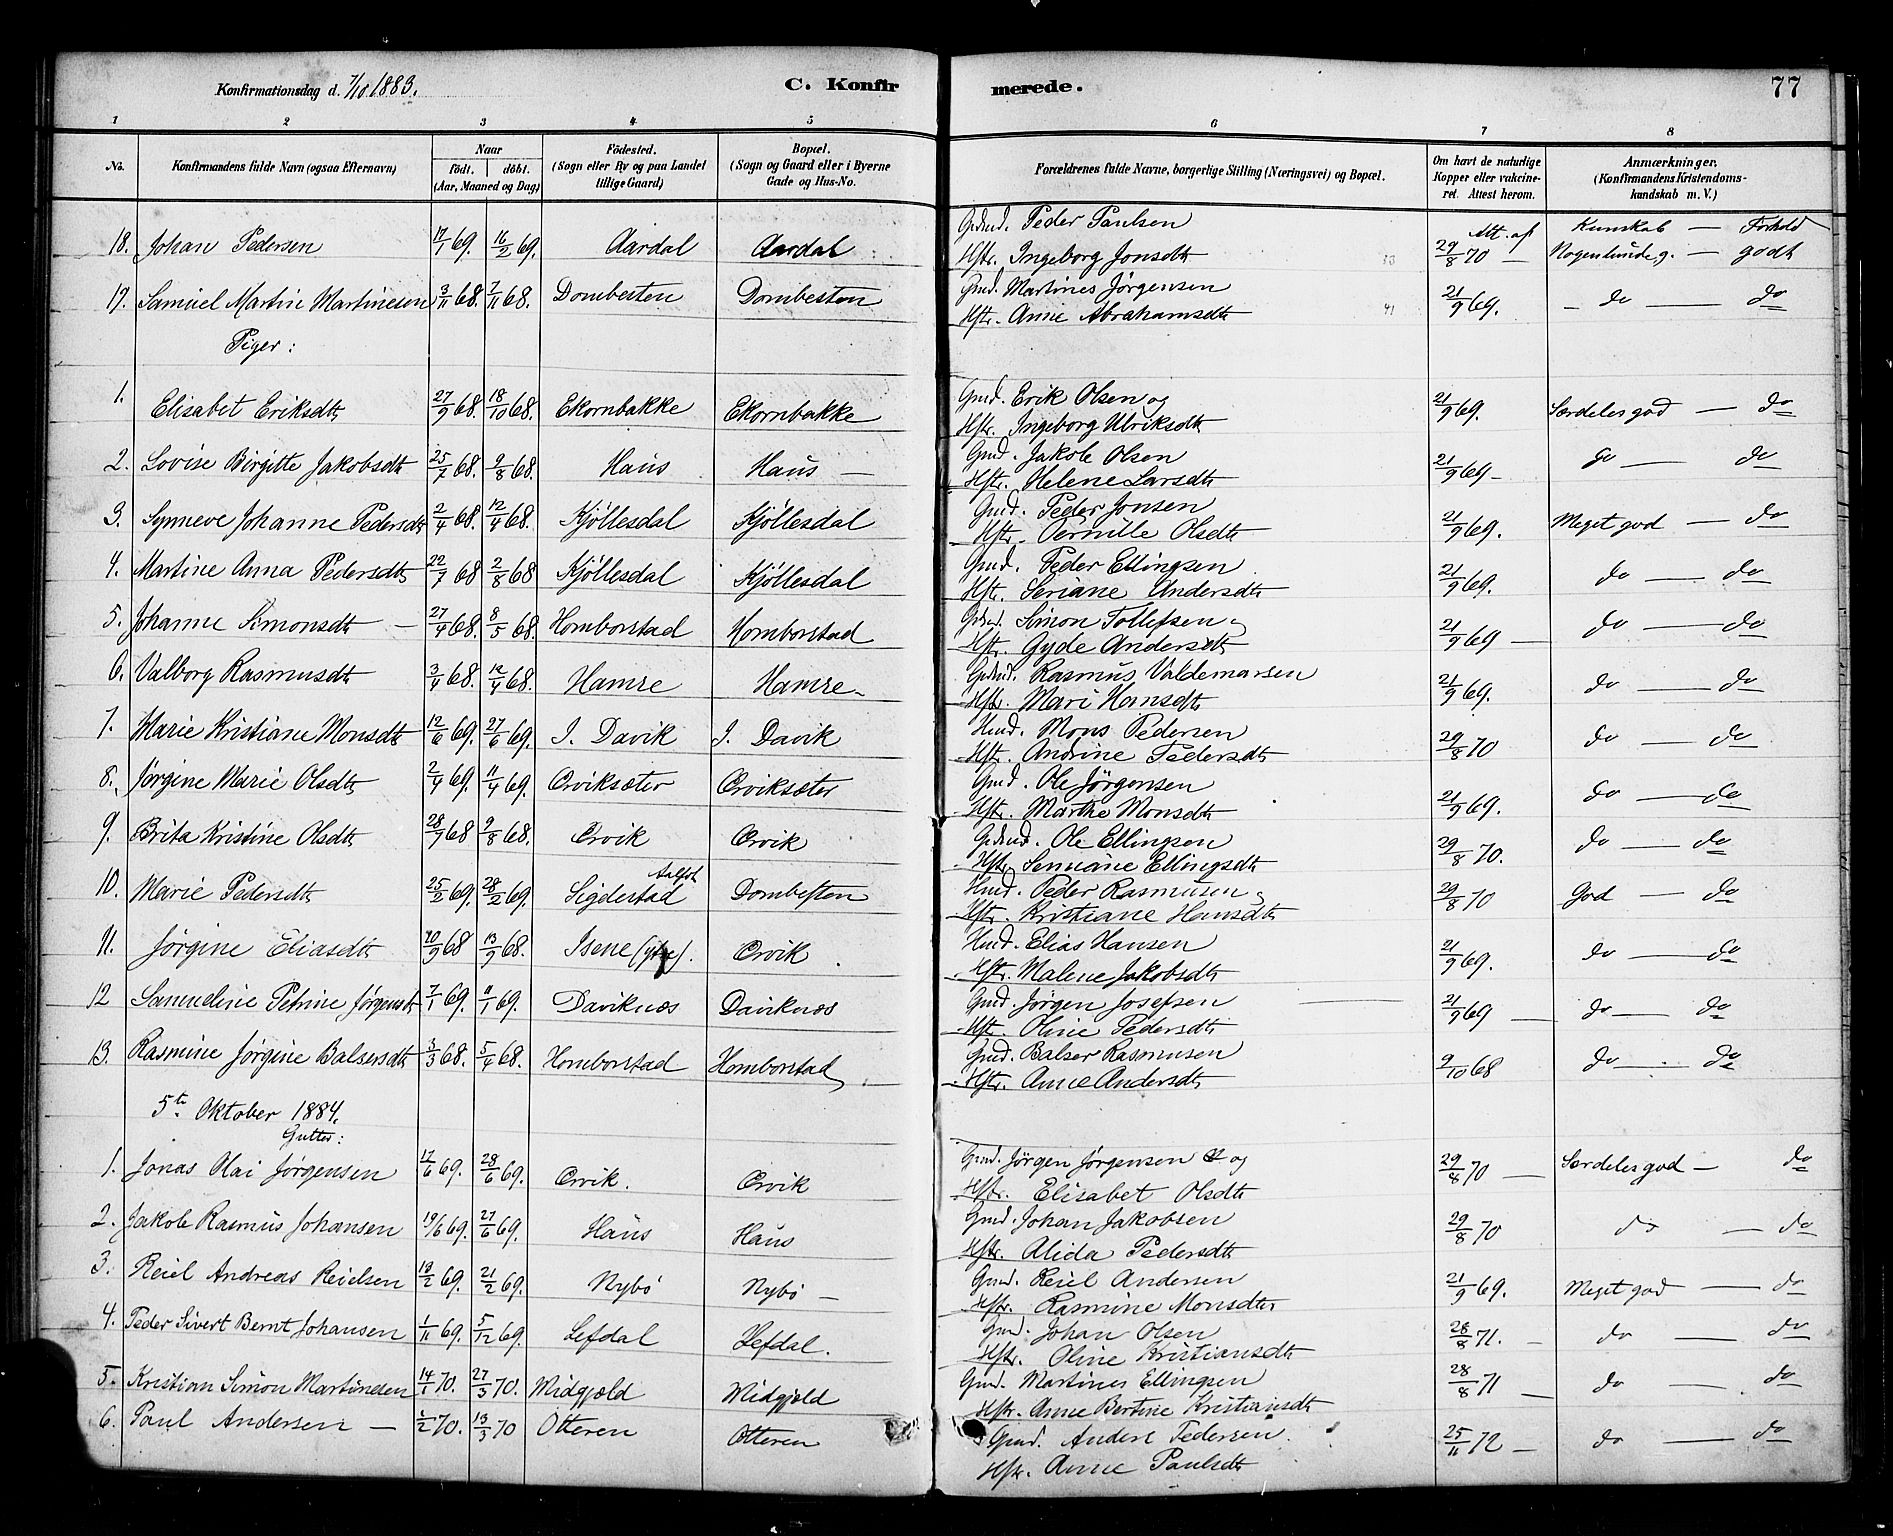 Konfirmationsdag d. 7/10 1883. C. Konfir merede. 77
1 2 3 4 5 6 7 8
No. Konfirmandens fulde Navn (ogsaa Efternavn) Naar født. døbt. (Aar, Maaned og Dag) Födested. (Sogn eller By og paa Landet tillige Gaard) Bopæl. (Sogn og Gaard eller i Byerne Gade og Hus-No. Forældrenes fulde Navne, borgerlige Stilling (Næringsvei) og Bopæl. Om havt de naturlige Kopper eller vakcineret. Attest herom. Anmærkninger. (Konfirmandens Kristendomskundskab m. V.)
Gdmd. Peder Paulsen Att. af Kunskab — Forhold
18. Johan Pedersen 17/1 69. 16/2 69. Aardal Aardal Hstr. Ingeborg Jonsdtr 53 29/8 70 — Nogenlunde g. — godt
17. Samuel Martin Martinesen 3/11 68. 7/11 68. Dombesten Dombesten Gmd. Martines Jørgensen 21/9 69. — do — do
Hstr. Anne Abrahamsdtr 41
Piger:
1. Elisabet Eriksdtr 27/9 68. 18/10 68. Ekornbakke Ekornbakke Gmd. Erik Olsen og 21/9 69. Særdeles god — do
Hstr. Ingeborg Ulriksdtr
2. Lovise Birgitte Jakobsdtr 25/7 68. 9/8 68. Haus Haus — Gmd. Jakob Olsen 21/9 69 — do — do
Hstr. Helene Larsdtr
3. Synneve Johanne Pedersdtr 2/4 68. 12/4 68. Kjöllesdal Kjöllesdal Gmd. Peder Jonsen 21/9 69. Meget god — do
Hstr. Pernille Olsdtr
4. Martine Anna Pedersdtr 22/7 68 2/8 68 Kjöllesdal Kjöllesdal Gmd. Peder Ellingsen 21/9 69. do — do
Hstr. Seriane Andersdtr
5. Johanne Simonsdtr — 27/4 68. 8/5 68. Homborstad Homborstad Gdmd. Simon Tollefsen og 21/9 69 — do — do
Hstr. Gyde Andersdtr
6. Valborg Rasmusdtr 3/4 68. 12/4 68. Hamre Hamre — Gdmd. Rasmus Valdemarsen 21/9 69. do — do
Hstr. Mari Hansdtr
7. Marie Kristiane Monsdtr 12/6 69. 27/6 69. I. Davik I. Davik Hmd. Mons Pedersen 29/8 70 do — do
Hstr. Andrine Pedersdtr
8. Jørgine Marie Olsdtr 2/4 69. 11/4 69. Orviksæter Orviksæter Gmd. Ole Jørgensen 21/9 69. do — do
Hstr. Marthe Monsdtr
9. Brita Kristine Olsdtr 28/7 68 9/8 68. Orvik Orvik Gdmd. Ole Ellingsen 29/8 70. do — do
Hstr. Ellingsdtr
10. Marie Pedersdtr 25/2 69. 28/2 69. Aalfot Sigdestad Dombesten Hmd. Peder Rasmusen og 29/8 70 God — do
Hstr. Kristiane Hansdtr
11. Jørgine Eliasdtr 10/9 68 13/9 68. Isene (ytre). Orvik Hmd. Elias Hansen 21/9 69. do — do
Hstr. Malene Jakobsdtr
12 Samueline Petrine Jørgensdtr 7/1 69. 11/1 69. Daviknæs Daviknæs Gmd. Jørgen Josefsen 21/9 69 — do — do
Hstr. Oline Pedersdtr
13. Rasmine Jørgine Balsersdtr 3/3 68. 5/4 68. Homborstad Homborstad Gmd. Balser Rasmusen 9/10 68 do — do
Hstr. Anne Andersdtr
5te Oktober 1884.
Gutter:
1. Jonas Olai Jørgensen 17/6 69. 28/6 69. Orvik. Orvik Gmd. Jørgen Jørgensen og 29/8 70 — Særdeles god — do
Hstr. Elisabet Olsdtr
2. Jakob Rasmus Johansen 19/6 69. 27/6 69. Haus Haus Gmd. Johan Jakobsen 29/8 70 do — do
Hstr. Alida Pedersdtr
3. Reiel Andreas Reielsen 18/2 69. 21/2 69. Nybö Nybö — Gmd. Reiel Andersen 21/9 69. Meget god — do
Hstr. Rasmine Monsdtr
4. Peder Sivert Bernt Johansen 1/11 69. 5/12 69. Lefdal Lefdal. Gmd. Johan Olsen 28/8 71. — do — do
Hstr. Oline Kristiansdtr
5. Kristian Simon Martinesen 14/1 70. 27/3 70. Midgjæld Midgjæld Gmd. Martines Ellingsen 28/8 71 — do — do
Hstr. Anne Bertine Kristiansdtr
6. Paul Andersen — 1/2 70. 13/3 70 Otteren Otteren Gmd. Anders Pedersen. 25/11 72 — do — do
Hstr. Anne Paulsdtr